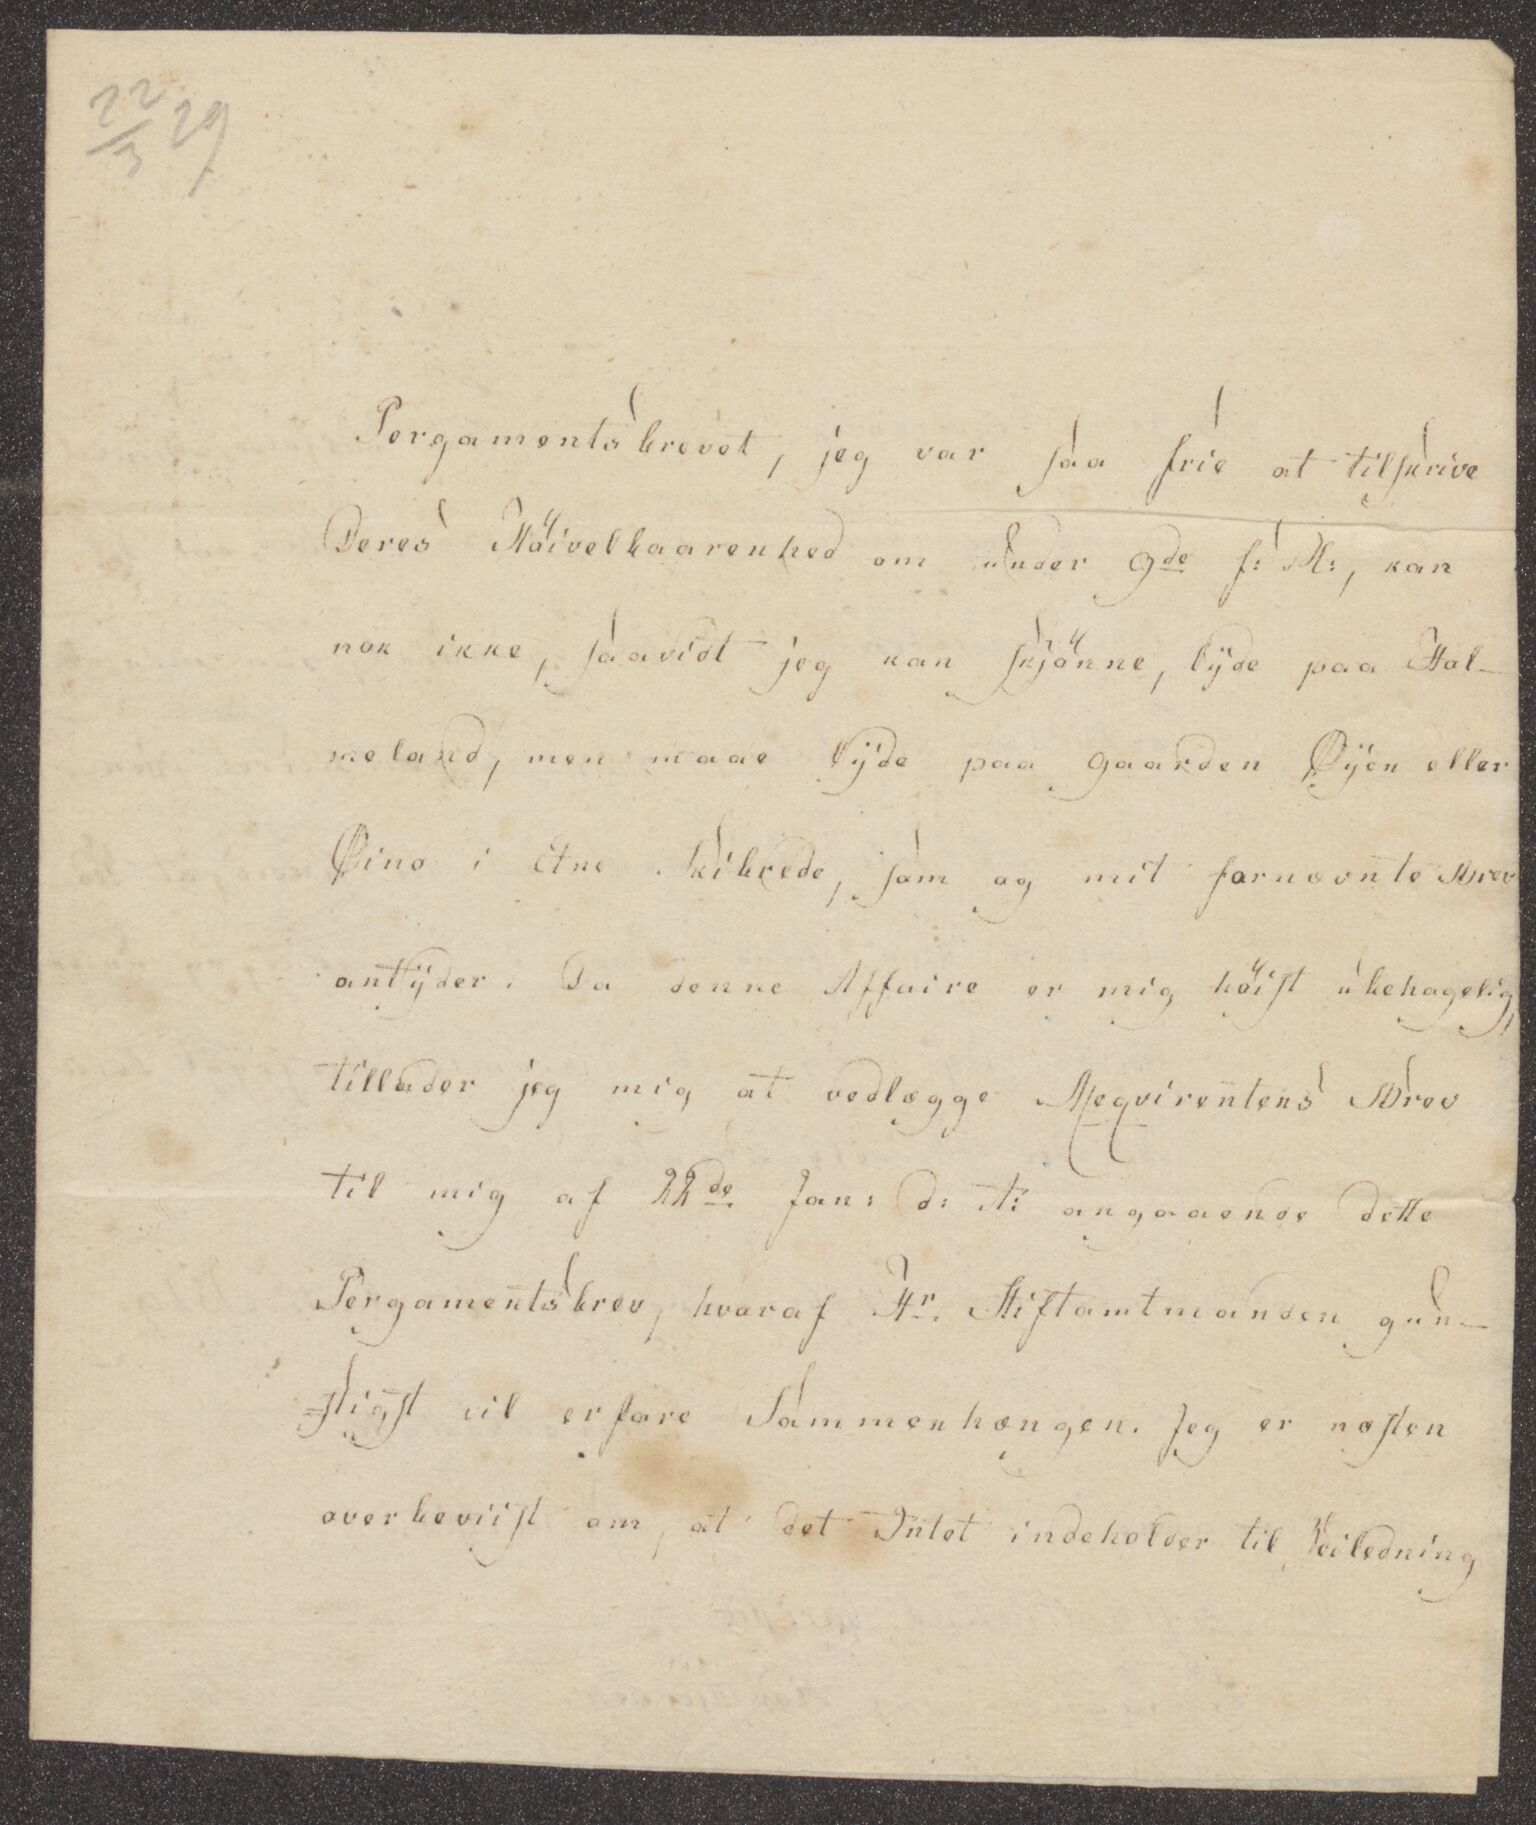 22/3 29
Pergamentsbrevet, jeg var saa frie at tilskrive
Deres Höivelbaarenhed om under 9de f: M:, kan
nok ikke, saavidt jeg kan skjönne, lÿde paa Hal-
meland, men maae lÿde paa gaarden Øÿen eller
Øino i Etne Skibrede, som og mit fornævnte Brev
antÿder. Da denne Affaire er mig höist ubehagelig,
tillader jeg mig at vedlægge Reqvirentens Brev
til mig af 22de Jan: d: A: angaaende dette
Pergamentsbrev, hvoraf Hr. Stiftamtmanden gun-
=stigst vil erfare Sammenhængen. Jeg er næsten
overbeviist om, at det Intet indeholder til Veiledning